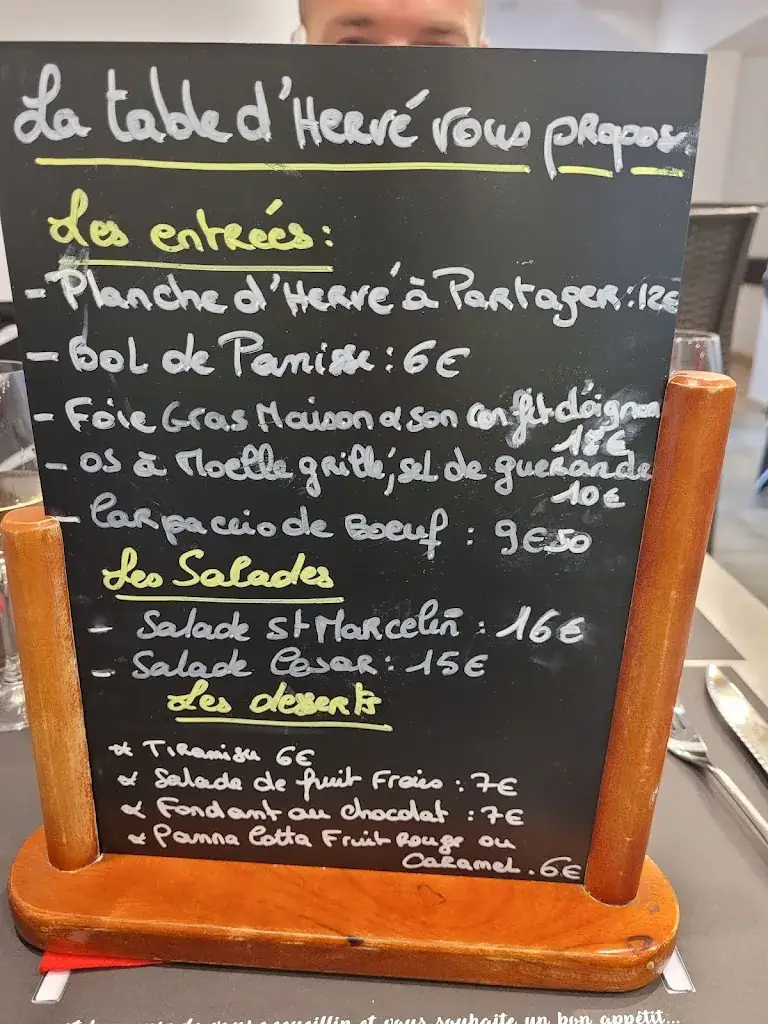 La table d'Hervé vous propos
Les entrées:
- Planche d'Hervé à Partager: 12€
- Bol de Panisse: 6€
- Foie Gras Maison & son confit d'oignon
- Os à Moelle grillé, sel de guerande
10€
- Carpaccio de Boeuf : 9€50
Les Salades
- Salade St Marcelin : 16€
- Salade Cesar: 15€
Les desserts
* Tiramisu 6€
* Salade de fruit Frais : 7€
* Fondant au chocolat : 7€
* Panna Cotta Fruit Rouge ou
Caramel. 6€
et vous souhaite un bon appétit...